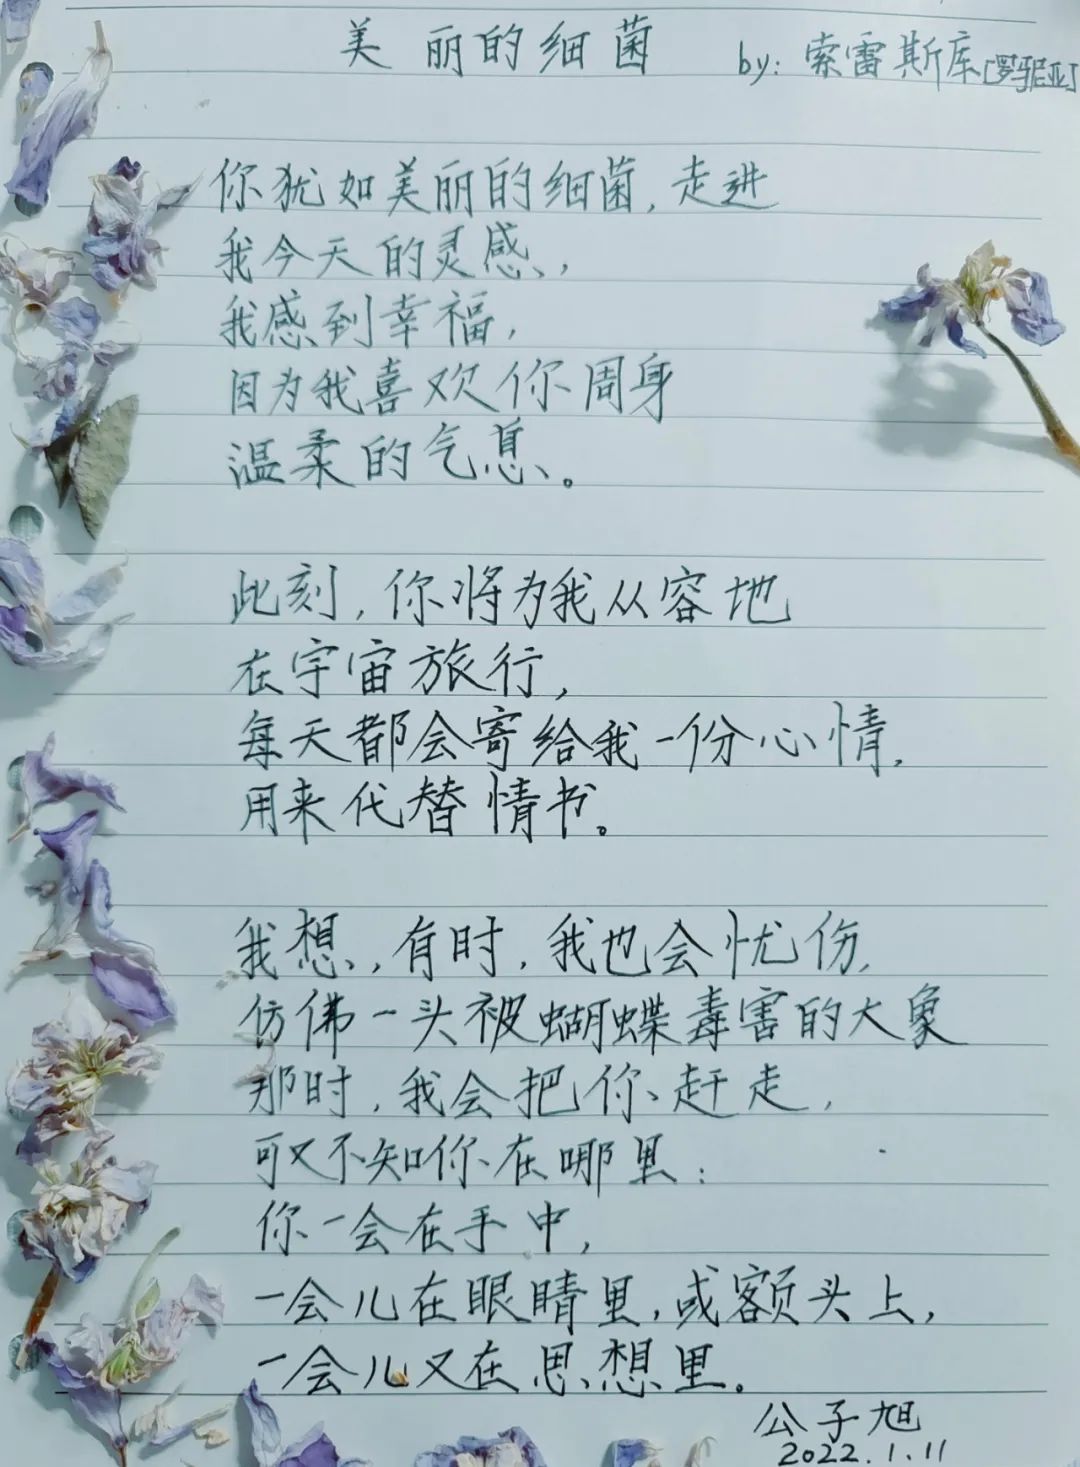 美丽的细菌
by: 索雷斯库[罗马尼亚]
你犹如美丽的细菌,走进
我今天的灵感,
我感到幸福,
因为我喜欢你周身
温柔的气息。
此刻,你将为我从容地
在宇宙旅行,
每天都会寄给我一份心情,
用来代替情书。
我想,有时,我也会忧伤,
仿佛一头被蝴蝶毒害的大象
那时,我会把你赶走,
可又不知你在哪里:
你一会在手中,
一会儿在眼睛里,或额头上,
一会儿又在思想里。
公子旭
2022.1.11